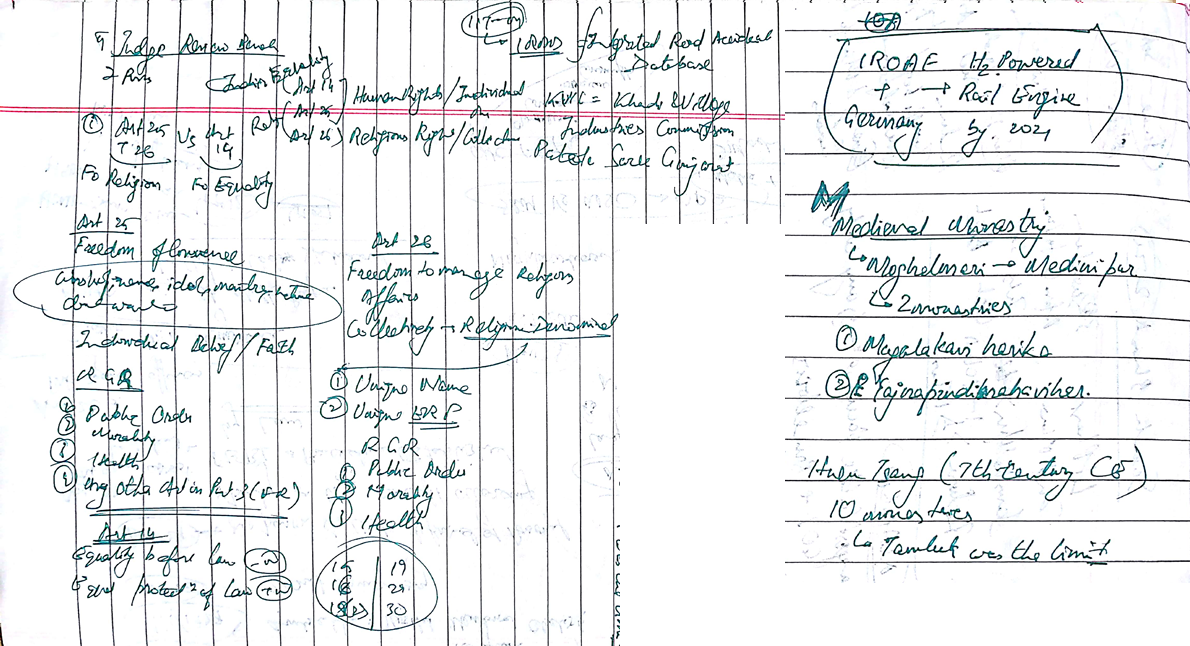 9 Judge Review Bench
2 Parts
Equality
(Art 14
Art 25) Human Rights/Individual
Art 26) Religious Right/Collective
① Art 25 Vs Art
T 26 14
Fo Religion Fo Equality
Art 25
Freedom of Conscience
Individual Belief/Faith
R G R
① Public Order
② Morality
③ Health
④ any other Art in Part 3 (F R)
Art 14
Equality before law -ve
Equal protecn of law +ve
Art 26
Freedom to manage Religious
Affairs
Collectively → Religious Denominal
① Unique Name
② Unique
R G R
① Public Order
② Morality
③ Health
15 | 19
16 | 29
30
IIT-M
↳ IRAD = Integrated Road Accident
Database
KVIC = Khadi & Village
Industries Commission
Patola Saree Gujarat
IROAF H2 Powered
+ → Rail Engine
Germany by 2021
M
Medieval Monastry
↳ Moghelmari → Medinipur
↳ 2 monastries
① Mugalakavi harika
② Yajnapindikmahavihar.
Huen Tsang (7th Century CE)
10 monastries
↳ Tamluk was the limit